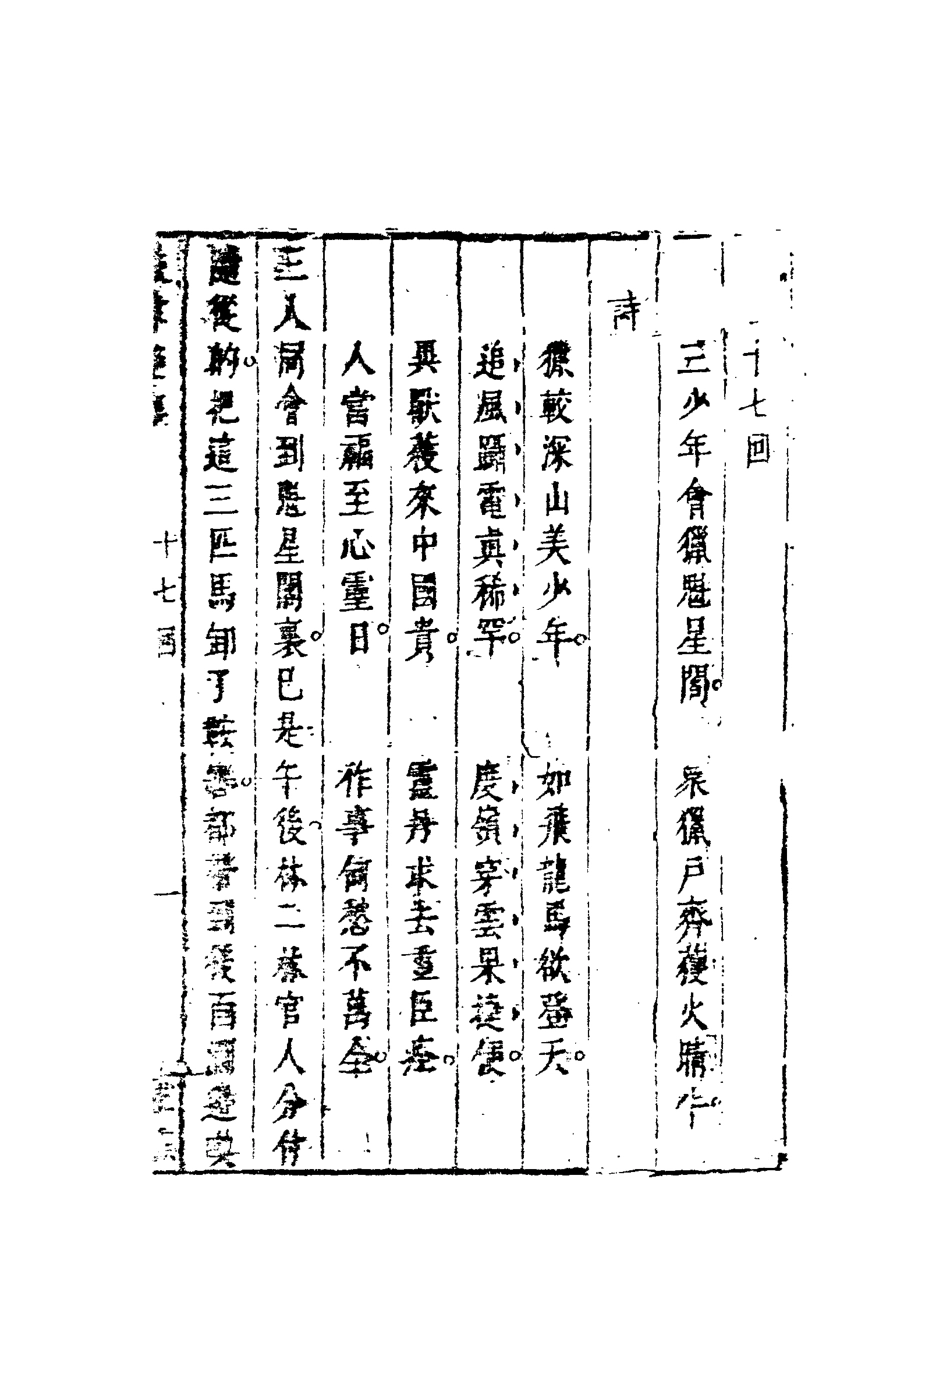 十七回
三少年會獵魁星閣。 衆獵戶齊獲火睛牛。
詩
獵較深山美少年。 如飛龍馬欲登天。
追風躡電真稀罕。 度嶺穿雲果捷便。
異獸獲來中國貴。 靈丹求去重臣痊。
人當福至心靈日。 作事何愁不萬全。
三人同會到魁星閣裏。已是午後。林二林官人分付
隨從的。把這三匹馬卸了鞍。都 到後面
十七回
一